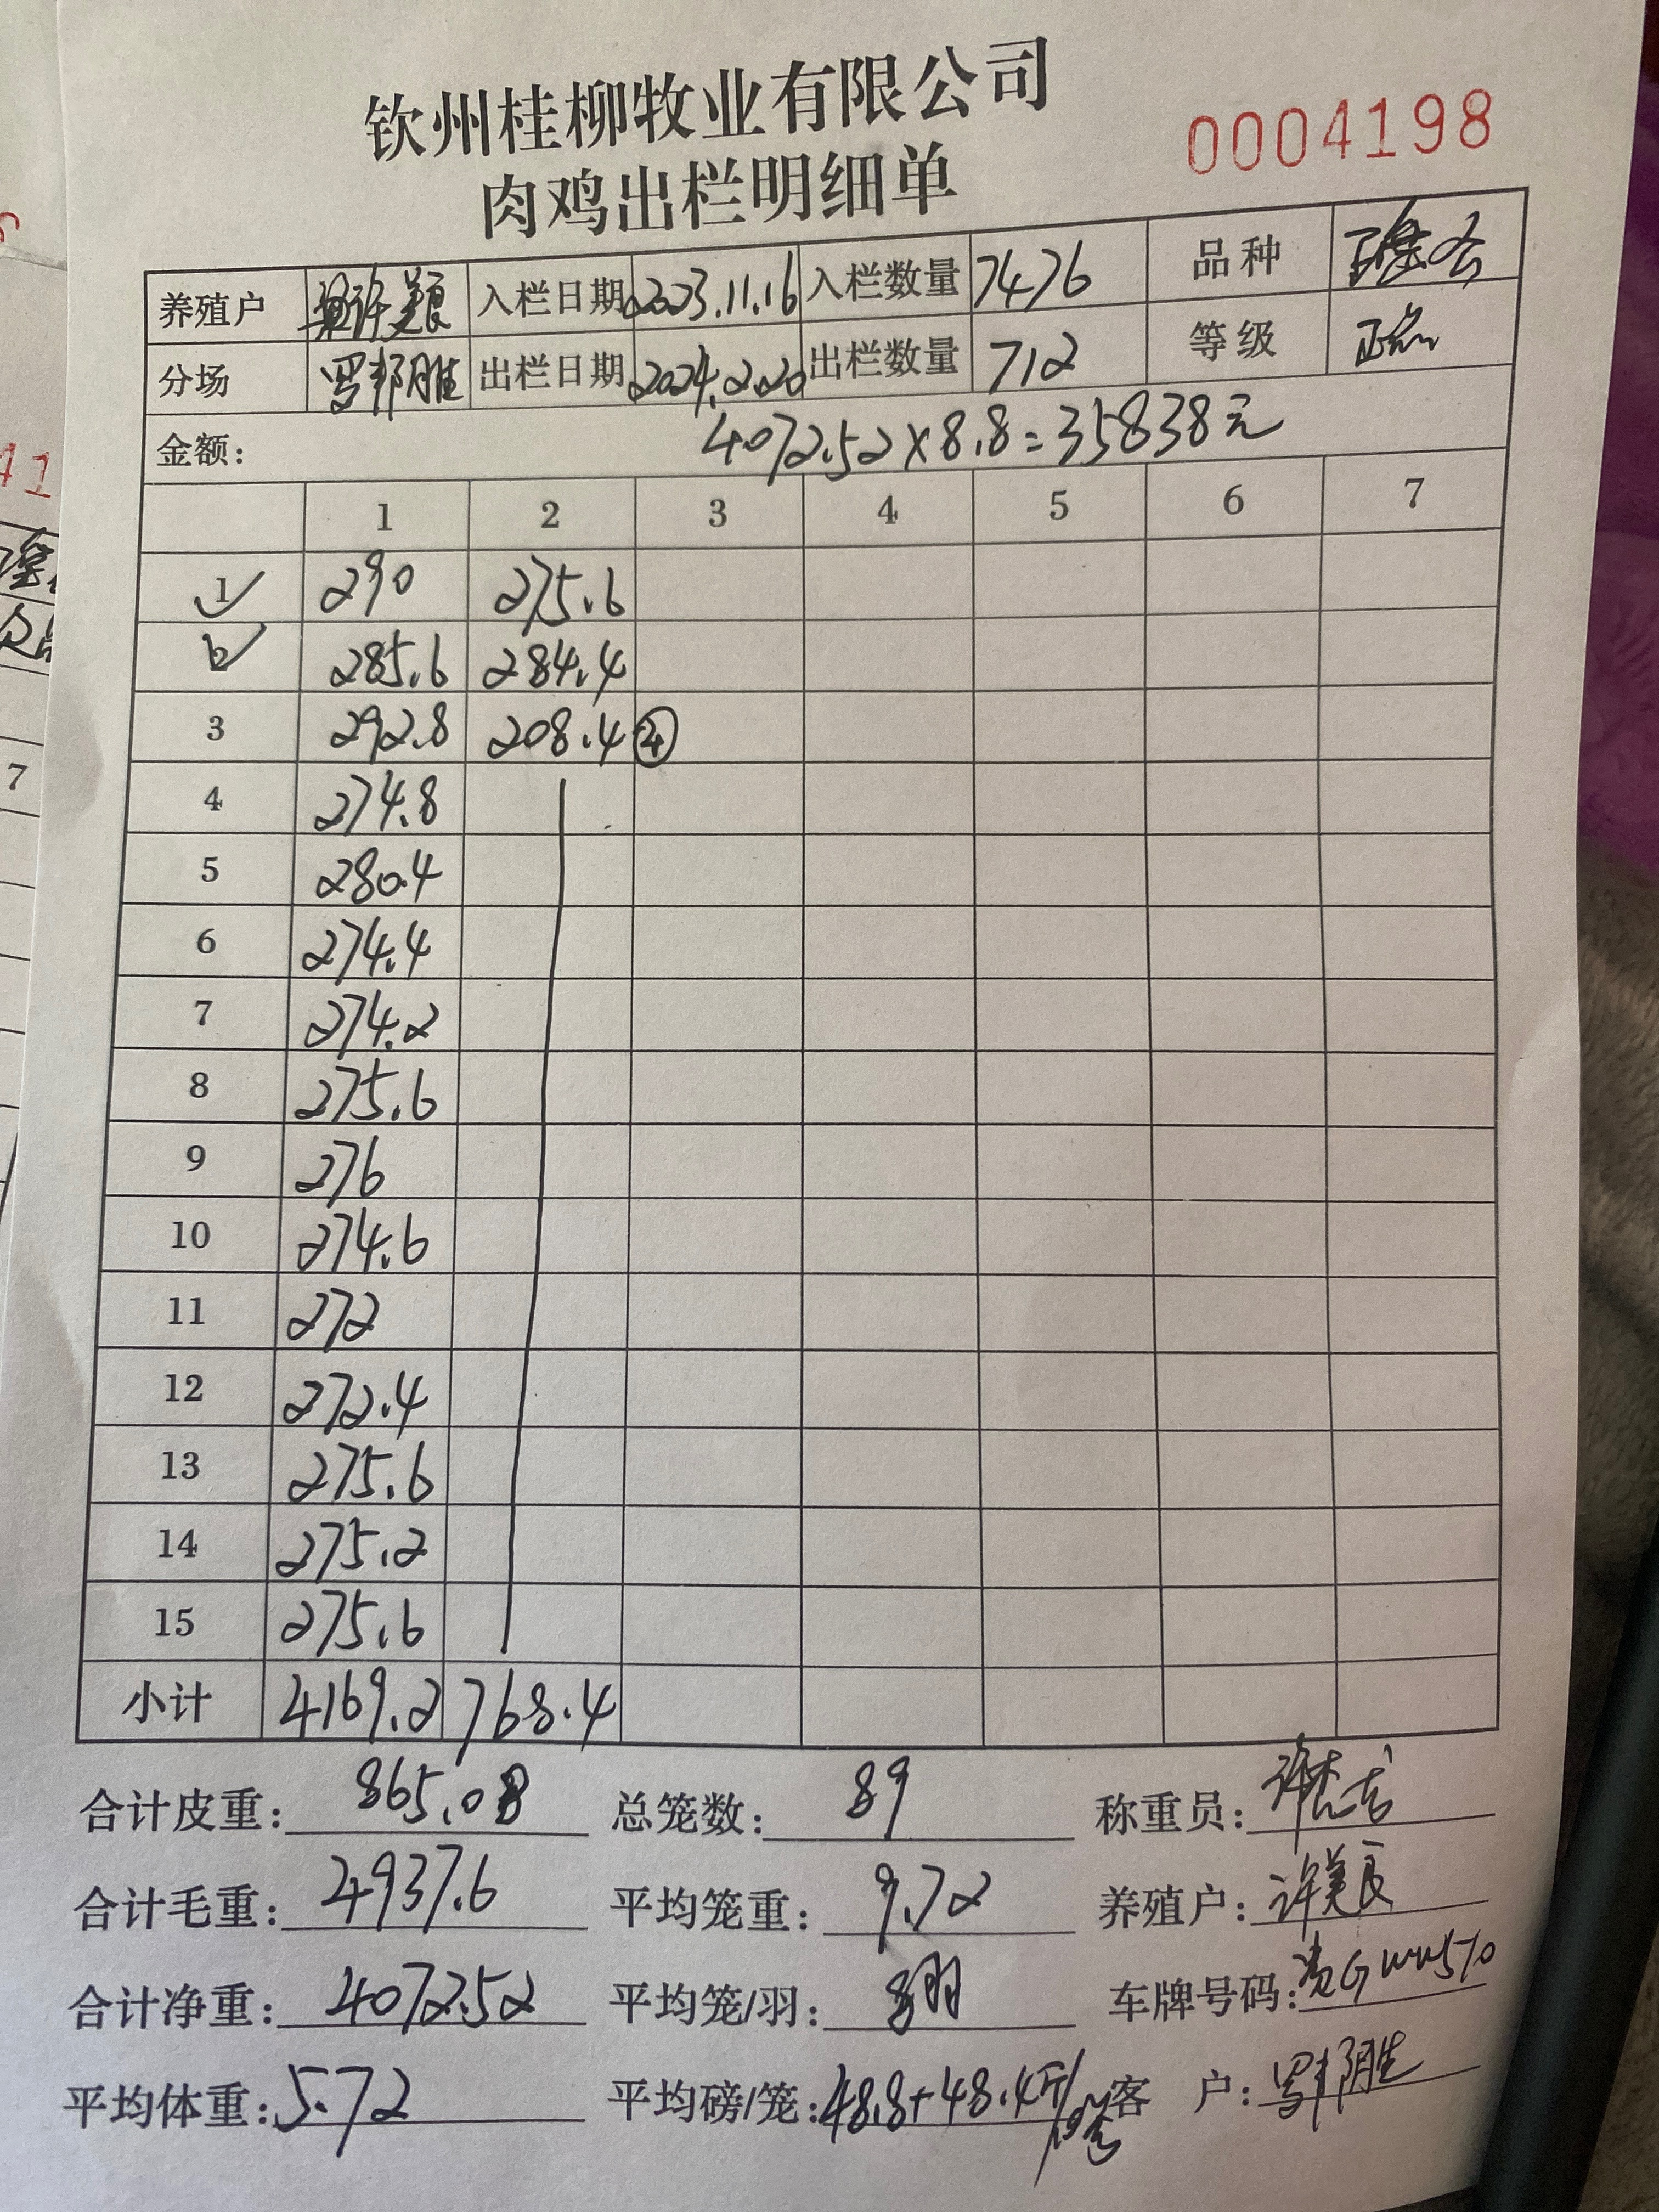 钦州桂柳牧业有限公司
肉鸡出栏明细单
0004198
养殖户 许美良 入栏日期 2023.11.16 入栏数量 7476 品种
分场 罗邦胜 出栏日期 2024.2.20 出栏数量 712 等级 正品
金额: 4072.52×8.8=35838元
1 2 3 4 5 6 7
1 290 275.6
2 285.6 284.4
3 292.8 208.4 ④
4 274.8
5 280.4
6 274.4
7 274.2
8 275.6
9 276
10 274.6
11 272
12 272.4
13 275.6
14 275.2
15 275.6
小计 4169.2 768.4
合计皮重: 865.08 总笼数: 89 称重员:
合计毛重: 4937.6 平均笼重: 9.72 养殖户: 许美良
合计净重: 4072.52 平均笼/羽: 8羽 车牌号码:
平均体重: 5.72 平均磅/笼: 48.8+48.4斤/ 客 户: 罗邦胜
41
7